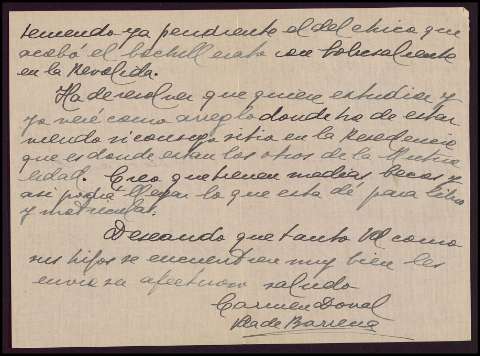 teniendo ya pendiente el del chico que
acabó el bachillerato con sobresaliente
en la Revalida.
Ha de resolver que quiere estudiar y
ya veré como arreglo donde ha de estar
viendo si consigo sitio en la Residencia
que es donde estan los otros de la
Creo que tienen medias becas y
asi podrá llegar lo que esta dé para libros
y matriculas.
Deseando que tanto Vd como
sus hijos se encuentren muy bien les
envia su afectuoso saludo
Carmen Donal
Vda de Barrena